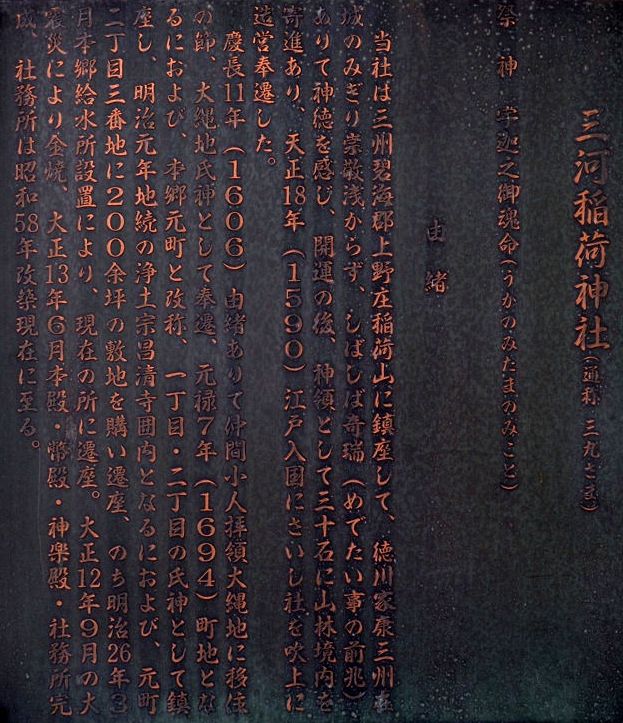 三河稲荷神社(通称 三九さま)
祭 神 宇迦之御魂命(うかのみたまのみこと)
由 緒
当社は三州碧海郡上野庄稲荷山に鎮座して、徳川家康三州在
城のみぎり崇敬浅からず、しばしば奇瑞(めでたい事の前兆)
ありて神徳を感じ、開運の後、神領として三十石に山林境内を
寄進あり、天正18年(1590)江戸入国にさいし社を吹上に
造営奉遷した。
慶長11年(1606)由緒ありて仲間小人拝領大縄地に移住
の節、大縄地氏神として奉遷、元禄7年(1694)町地とな
るにおよび、本郷元町と改称、一丁目・二丁目の氏神として鎮
座し、明治元年地続の浄土宗昌清寺囲内となるにおよび、元町
二丁目三番地に200余坪の敷地を購い遷座、のち明治26年3
月本郷給水所設置により、現在の所に遷座。大正12年9月の大
震災により全焼、大正13年6月本殿・幣殿・神楽殿・社務所完
成、社務所は昭和58年改築現在に至る。